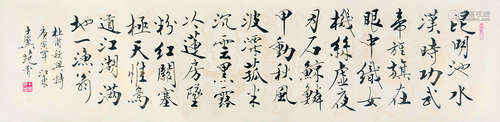 昆明池水
漢時功武
帝旌旗在
眼中織女
機絲虛夜
月石鯨鱗
甲動秋風
波漂菰米
沉雲黑露
冷蓮房墜
粉紅關塞
極天惟鳥
道江湖滿
地一漁翁
杜甫秋興詩